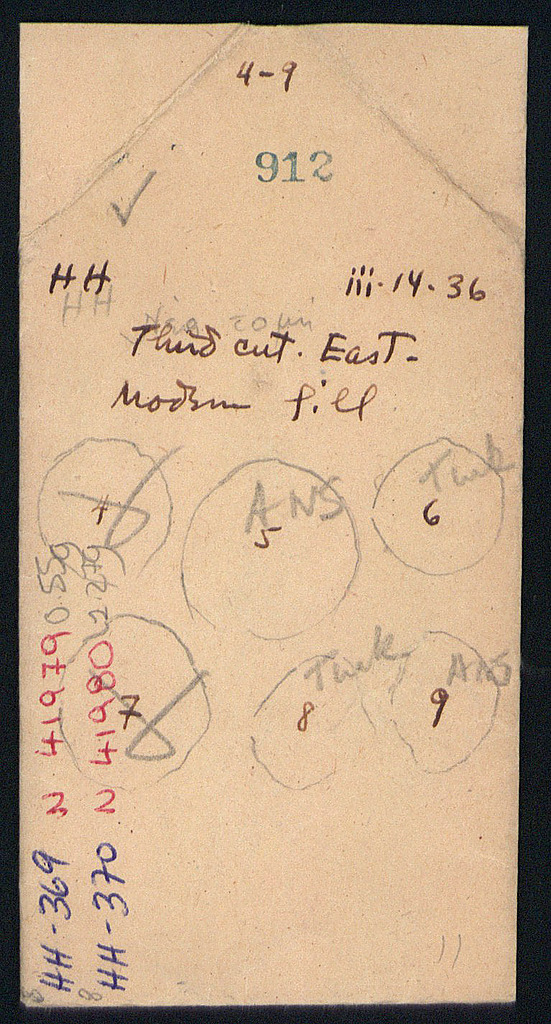 4-9
912
HH iii·14·36
HH
Third cut. East-
Modern fill
4 5 ANS 6 Turk
7 8 Turk 9 ANS
HH-369 2 41979 0.55g
HH-370 2 41980 2.27g